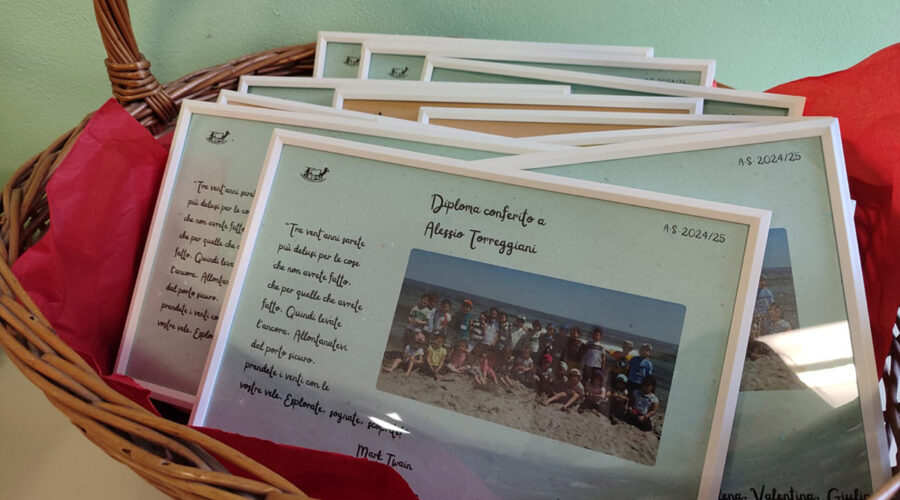 A.S. 2024/25
Diploma conferito a
Alessio Torreggiani
"Tra vent'anni sarete
più delusi per le cose
che non avrete fatto,
che per quelle che avrete
fatto. Quindi levate
l'ancora. Allontanatevi
dal porto sicuro,
prendete i venti con le
vostre vele. Esplorate, sognate, scoprite!"
Mark Twain
"Tra vent'anni
più delusi per le cose
che non avrete
che per quelle che
fatto. Quindi
l'ancora.
dal porto sicuro,
prendete i venti
vostre vele.
A.S. 2024/25
Valentina,
A.S. 2024/25